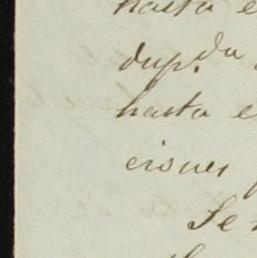 hasta e
dup.da
hasta e
ciones
Se